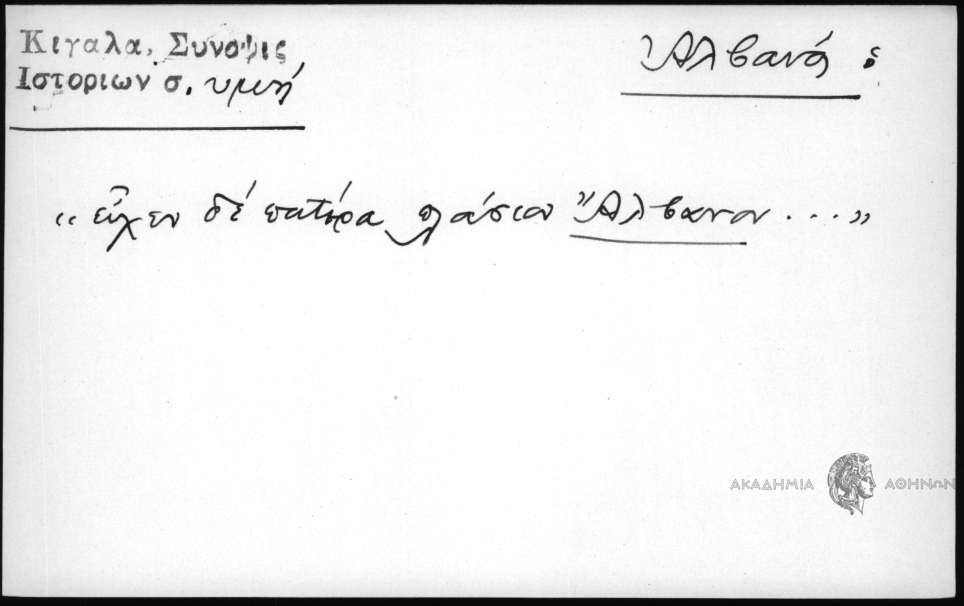 Κιγαλα, Συνοψις
Ιστοριων σ. υμη'
Ἀλβανός
“εἶχεν δέ πατέρα πλάσιον Ἄλβανον ...”
ΑΚΑΔΗΜΙΑ ΑΘΗΝΩΝ